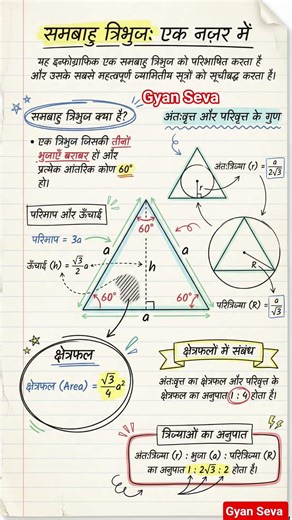 समबाहु त्रिभुज: एक नज़र में
यह इन्फोग्राफिक एक समबाहु त्रिभुज को परिभाषित करता है
और उसके सबसे महत्वपूर्ण ज्यामितीय सूत्रों को सूचीबद्ध करता है।
Gyan Seva
समबाहु त्रिभुज क्या है?
• एक त्रिभुज जिसकी तीनों
भुजाएँ बराबर हों और
प्रत्येक आंतरिक कोण 60°
हो।
अंतःवृत्त और परिवृत्त के गुण
r
अंतःत्रिज्या (r) = a/2√3
R
परित्रिज्या (R) = a/√3
परिमाप और ऊँचाई
परिमाप = 3a
ऊँचाई (h) = √3/2 a
60°
a
a
h
60°
60°
a
क्षेत्रफल
क्षेत्रफल (Area) = √3/4 a²
क्षेत्रफलों में संबंध
अंतःवृत्त का क्षेत्रफल और परिवृत्त के
क्षेत्रफल का अनुपात 1 : 4 होता है।
त्रिज्याओं का अनुपात
अंतःत्रिज्या (r) : भुजा (a) : परित्रिज्या (R)
का अनुपात 1 : 2√3 : 2 होता है।
Gyan Seva